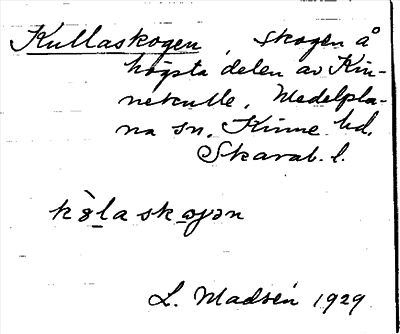 Kullaskogen, skogen å
högsta delen av Kin-
nekulle, Medelpla-
na sn, Kinne hd,
Skarab. l.
L. Madsén 1929